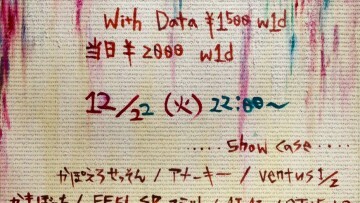 With Data ¥1500 w1d
当日 ¥2000 w1d
12/22 (火) 22:00〜
..... show case .....
かぽえろせっそん / アナーキー / ventus 1/2